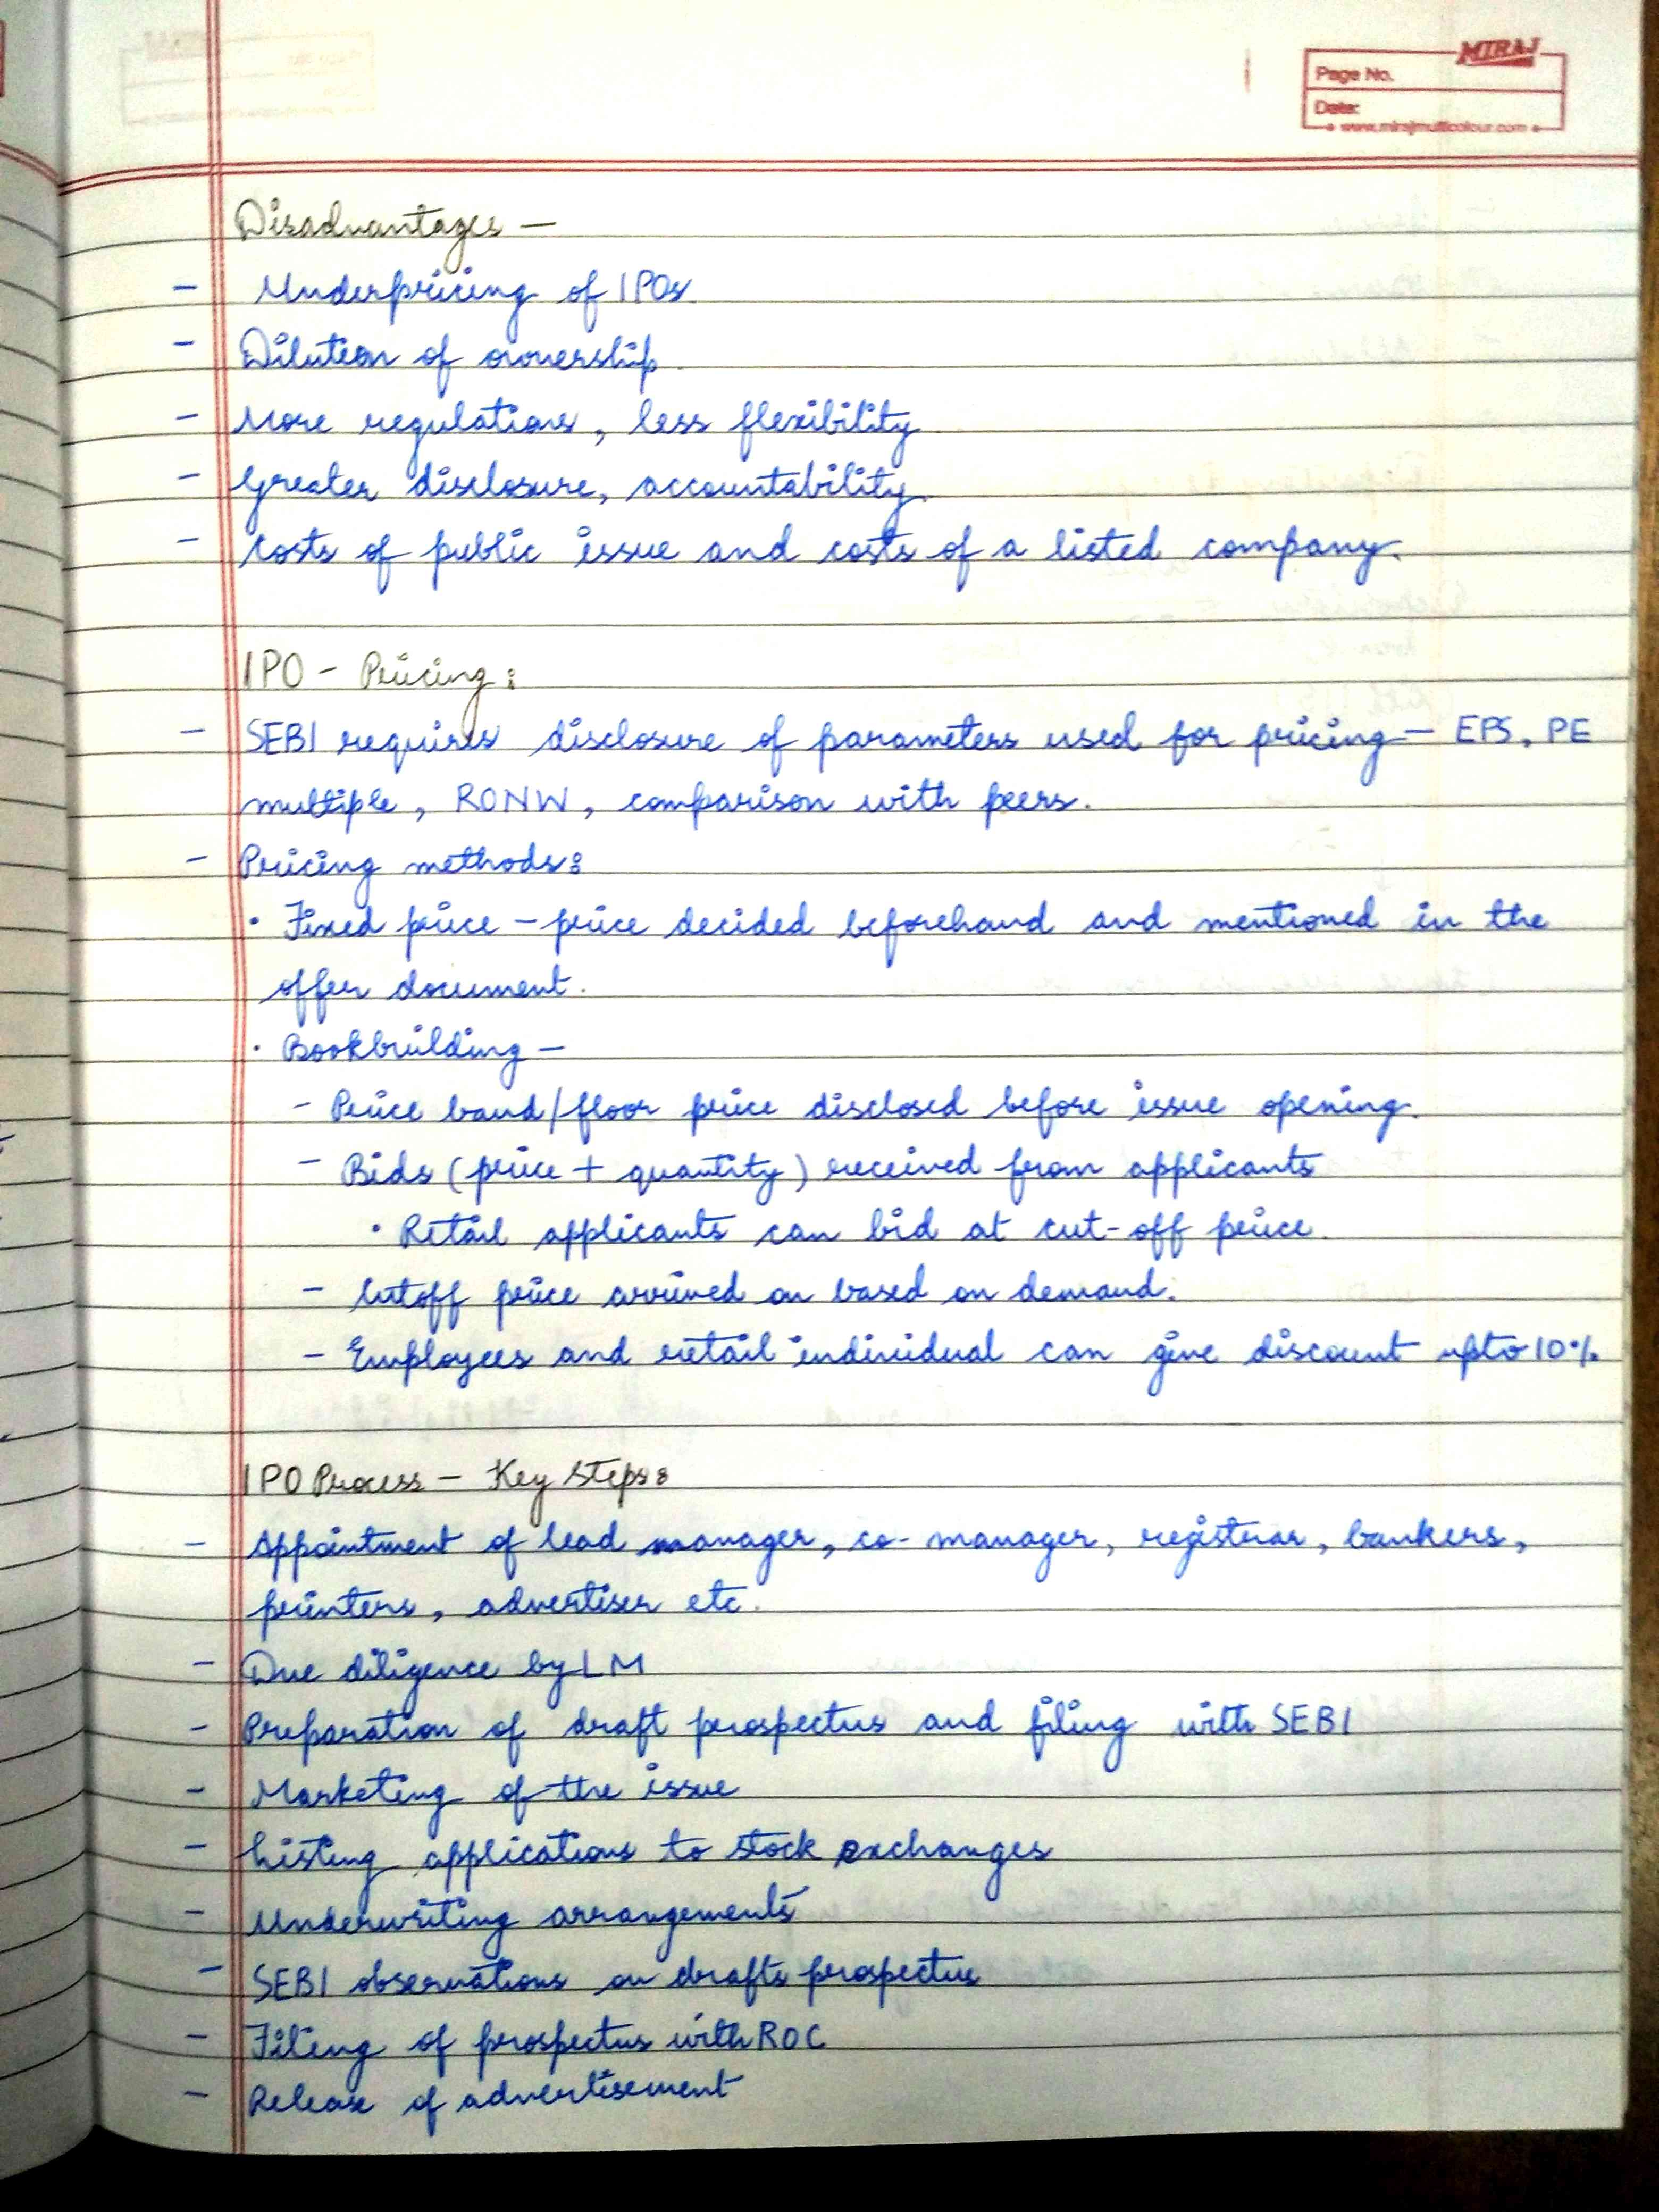 MIRAJ
Page No.
Date:
www.mirajmulticolour.com
Disadvantages –
– Underpricing of IPOs
– Dilution of ownership
– More regulations, less flexibility
– Greater disclosure, accountability.
– Costs of public issue and costs of a listed company.
IPO – Pricing:
– SEBI requires disclosure of parameters used for pricing – EPS, PE
multiple, RONW, comparison with peers.
– Pricing methods:
• Fixed price – price decided beforehand and mentioned in the
offer document.
• Bookbuilding –
– Price band/floor price disclosed before issue opening.
– Bids (price + quantity) received from applicants
• Retail applicants can bid at cut-off price.
– Cutoff price arrived on based on demand.
– Employees and retail individual can give discount upto 10%
IPO Process – Key Steps:
– Appointment of lead manager, co-manager, registrar, bankers,
printers, advertiser etc.
– Due diligence by LM
– Preparation of draft prospectus and filing with SEBI
– Marketing of the issue
– Listing applications to stock exchanges
– Underwriting arrangements
– SEBI observations on drafts prospectus
– Filing of prospectus with ROC
– Release of advertisement